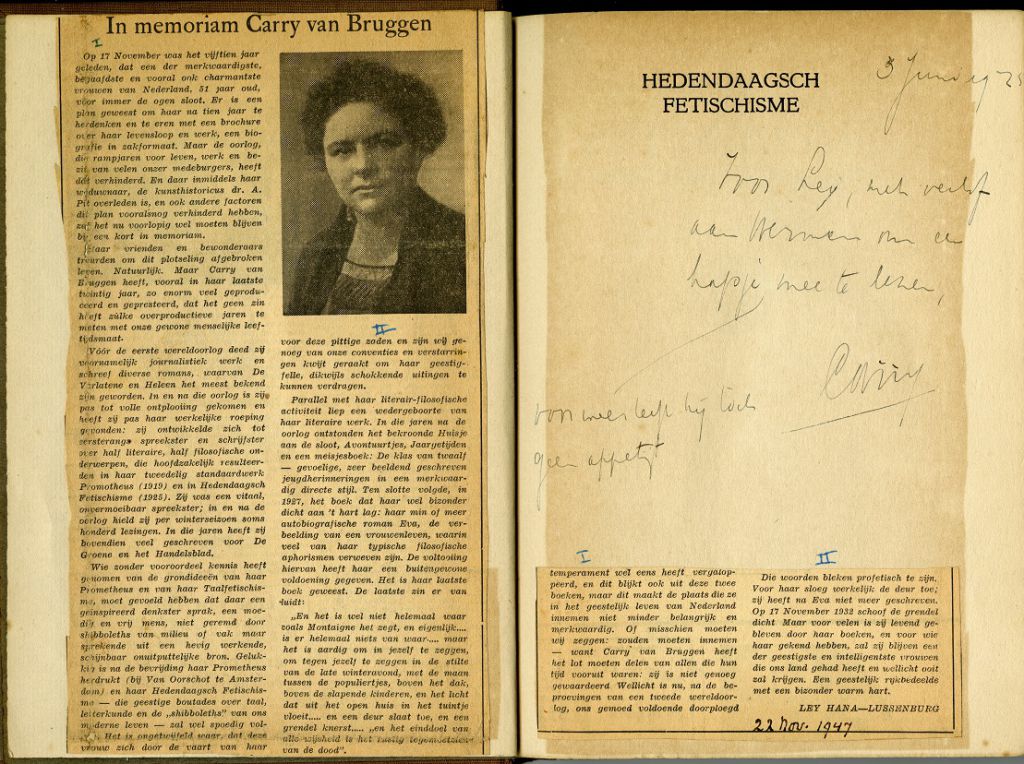 In memoriam Carry van Bruggen
I
Op 17 November was het vijftien jaar
geleden, dat een der merkwaardigste,
begaafdste en vooral ook charmantste
vrouwen van Nederland, 51 jaar oud,
voor immer de ogen sloot. Er is een
plan geweest om haar na tien jaar te
herdenken en te eren met een brochure
over haar levensloop en werk, een bio-
grafie in zakformaat. Maar de oorlog,
die rampjaren voor leven, werk en be-
zit van velen onzer medeburgers, heeft
dit verhinderd. En daar inmiddels haar
weduwnaar, de kunsthistoricus dr. A.
Pit overleden is, en ook andere factoren
dit plan vooralsnog verhinderd hebben,
zal het nu voorlopig wel moeten blijven
bij een kort in memoriam.
Haar vrienden en bewonderaars
treurden om dit plotseling afgebroken
leven. Natuurlijk. Maar Carry van
Bruggen heeft, vooral in haar laatste
twintig jaar, zo enorm veel geprodu-
ceerd en gepresteerd, dat het geen zin
heeft zúlke overproductieve jaren te
meten met onze gewone menselijke leef-
tijdsmaat.
Vóór de eerste wereldoorlog deed zij
voornamelijk journalistiek werk en
schreef diverse romans, waarvan De
Verlatene en Heleen het meest bekend
zijn geworden. In en na die oorlog is zij
pas tot volle ontplooing gekomen en
heeft zij pas haar werkelijke roeping
gevonden: zij ontwikkelde zich tot
eersterangs spreekster en schrijfster
over half literaire, half filosofische on-
derwerpen, die hoofdzakelijk resulteer-
den in haar tweedelig standaardwerk
Promotheus (1919) en in Hedendaagsch
Fetischisme (1925). Zij was een vitaal,
onvermoeibaar spreekster; in en na de
oorlog hield zij per winterseizoen soms
honderd lezingen. In die jaren heeft zij
bovendien veel geschreven voor De
Groene en het Handelsblad.
Wie zonder vooroordeel kennis heeft
genomen van de grondideeën van haar
Prometheus en van haar Taalfetischis-
me, moet gevoeld hebben dat daar een
geïnspireerd denkster sprak, een moe-
dig en vrij mens, niet geremd door
shibboleths van milieu of vak maar
sprekende uit een hevig werkende,
schijnbaar onuitputtelijke bron. Geluk-
kig is na de bevrijding haar Prometheus
herdrukt (bij Van Oorschot te Amster-
dam) en haar Hedendaagsch Fetischis-
me — die geestige boutades over taal,
letterkunde en de „shibboleths" van ons
moderne leven — zal wel spoedig vol-
gen. Het is ongetwijfeld waar, dat deze
vrouw zich door de vaart van haar
II
voor deze pittige zaden en zijn wij ge-
noeg van onze conventies en verstarrin-
gen kwijt geraakt om haar geestig-
felle, dikwijls schokkende uitingen te
kunnen verdragen.
Parallel met haar literair-filosofische
activiteit liep een wedergeboorte van
haar literaire werk. In die jaren na de
oorlog ontstonden het bekroonde Huisje
aan de sloot, Avontuurtjes, Jaargetijden
en een meisjesboek: De klas van twaalf
— gevoelige, zeer beeldend geschreven
jeugdherinneringen in een merkwaar-
dig directe stijl. Ten slotte volgde, in
1927, het boek dat haar wel bizonder
dicht aan 't hart lag: haar min of meer
autobiografische roman Eva, de ver-
beelding van een vrouwenleven, waarin
veel van haar typische filosofische
aphorismen verweven zijn. De voltooiing
hiervan heeft haar een buitengewone
voldoening gegeven. Het is haar laatste
boek geweest. De laatste zin er van
luidt:
„En het is wel niet helemaal waar
zoals Montaigne het zegt, en eigenlijk....
is er helemaal niets van waar.... maar
het is aardig om in jezelf te zeggen,
om tegen jezelf te zeggen in de stilte
van de late winteravond, met de maan
tussen de populiertjes, boven het dak,
boven de slapende kinderen, en het licht
dat uit het open huis in het tuintje
vloeit.... en een deur slaat toe, en een
grendel knerst..... „en het einddoel van
alle wijsheid is het rustig tegemoetzien
van de dood".
HEDENDAAGSCH
FETISCHISME
5 Juni 1925
Voor Ley, met verlof
aan Herman om een
hapje mee te lezen,
Carry
voor mees leeft hij toch
geen appetijt
I
temperament wel eens heeft vergalop-
peerd, en dit blijkt ook uit deze twee
boeken, maar dit maakt de plaats die ze
in het geestelijk leven van Nederland
innemen niet minder belangrijk en
merkwaardig. Of misschien moeten
wij zeggen: zouden moeten innemen
— want Carry van Bruggen heeft
het lot moeten delen van allen die hun
tijd vooruit waren: zij is niet genoeg
gewaardeerd Wellicht is nu, na de be-
proevingen van een tweede wereldoor-
log, ons gemoed voldoende doorploegd
II
Die woorden bleken profetisch te zijn.
Voor haar sloeg werkelijk de deur toe;
zij heeft na Eva niet meer geschreven.
Op 17 November 1932 schoof de grendel
dicht Maar voor velen is zij levend ge-
bleven door haar boeken, en voor wie
haar gekend hebben, zal zij blijven een
der geestigste en intelligentste vrouwen
die ons land gehad heeft en wellicht ooit
zal krijgen. Een geestelijk rijkbedeelde
met een bizonder warm hart.
LEY HANA—LUSSENBURG
22 Nov. 1947